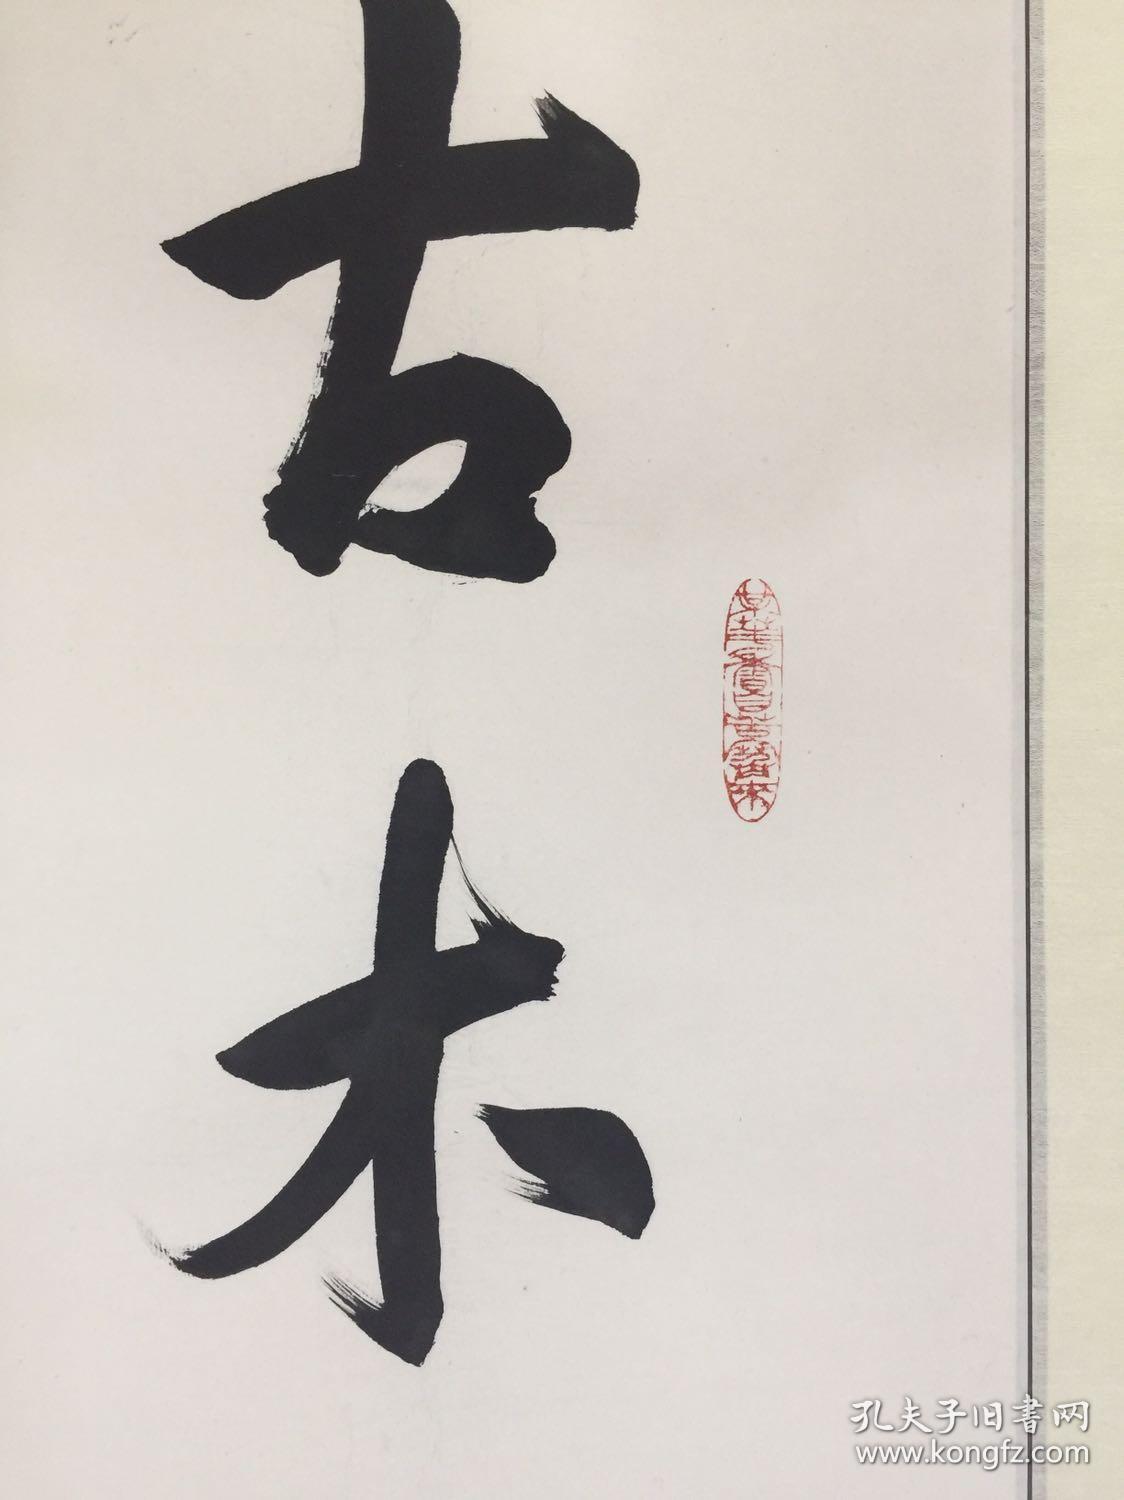 古木
孔夫子旧書网
www.kongfz.com